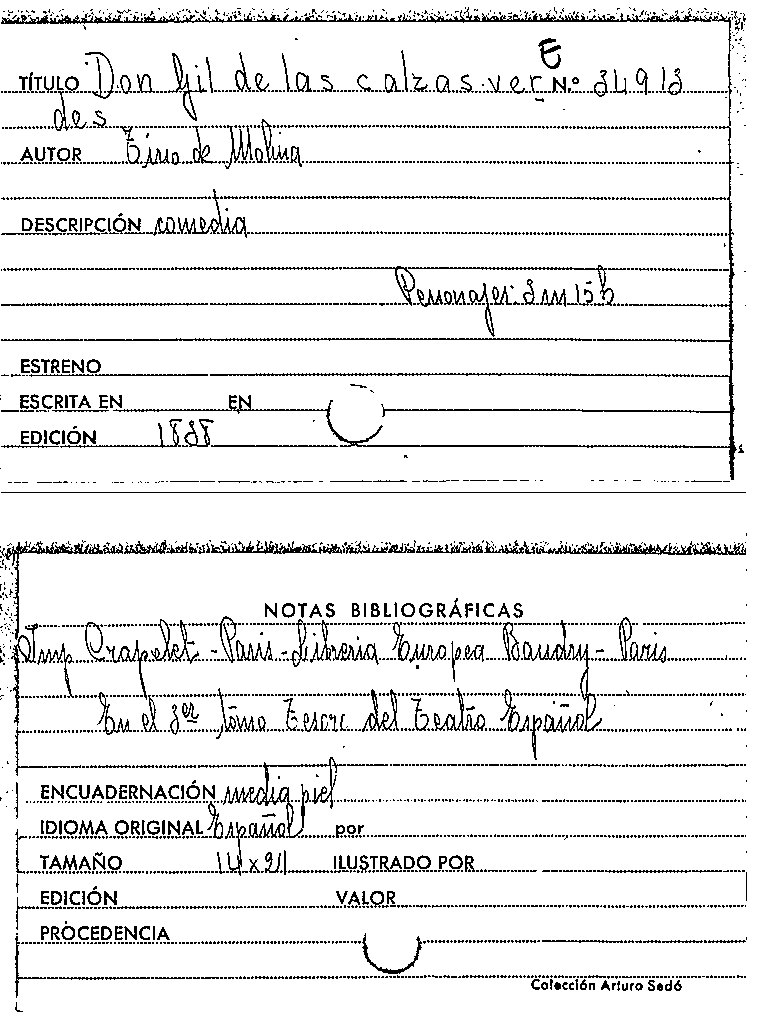 E
TÍTULO Don Gil de las calzas ver N.º 34913
des
AUTOR Tirso de Molina
DESCRIPCIÓN comedia
Personajes: 3 m 15 h
ESTRENO
ESCRITA EN EN
EDICIÓN 1838
NOTAS BIBLIOGRÁFICAS
Imp Crapelet - Paris - Libreria Europea Baudry - Paris
En el 3er tomo Tesoro del Teatro Español
ENCUADERNACIÓN media piel
IDIOMA ORIGINAL Español por
TAMAÑO 14 x 21 ILUSTRADO POR
EDICIÓN VALOR
PROCEDENCIA
Colección Arturo Sedó